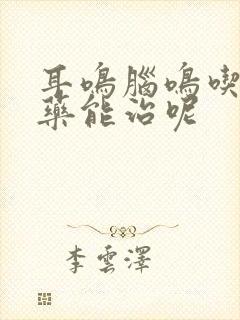 耳鳴腦鳴喫
藥能治呢
李雲澤